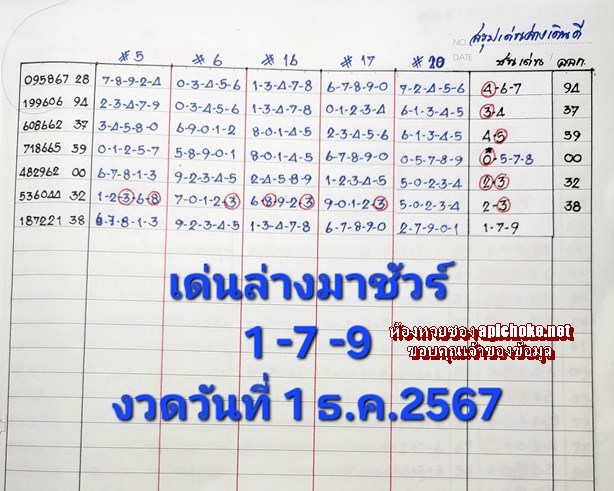 NO. สรุปเด่นล่างเดินดี
DATE
#5 #6 #16 #17 #20 ชนเด่น / ผลก.
095867 28 7-8-9-2-4 0-3-4-5-6 1-3-4-7-8 6-7-8-9-0 7-2-4-5-6 4-6-7 94
199606 94 2-3-4-7-9 0-3-4-5-6 1-3-4-7-8 0-1-2-3-4 6-1-3-4-5 3-4 37
608662 37 3-4-5-8-0 6-9-0-1-2 8-0-1-4-5 2-3-4-5-6 6-1-3-4-5 4-5 59
718665 59 0-1-2-5-7 5-8-9-0-1 8-0-1-4-5 6-7-8-9-0 0-5-7-8-9 0-5-7-8 00
482962 00 6-7-8-1-3 9-2-3-4-5 2-4-5-8-9 1-2-3-4-5 5-0-2-3-4 2-3 32
536044 32 1-2-3-6-8 7-0-1-2-3 6-8-9-2-3 9-0-1-2-3 5-0-2-3-4 2-3 38
187221 38 6-7-8-1-3 9-2-3-4-5 1-3-4-7-8 6-7-8-9-0 2-7-9-0-1 1-7-9
เด่นล่างมาชัวร์
1 -7 -9
ห้องหวยซอง apichoke.net
ขอบคุณเจ้าของข้อมูล
งวดวันที่ 1 ธ.ค.2567